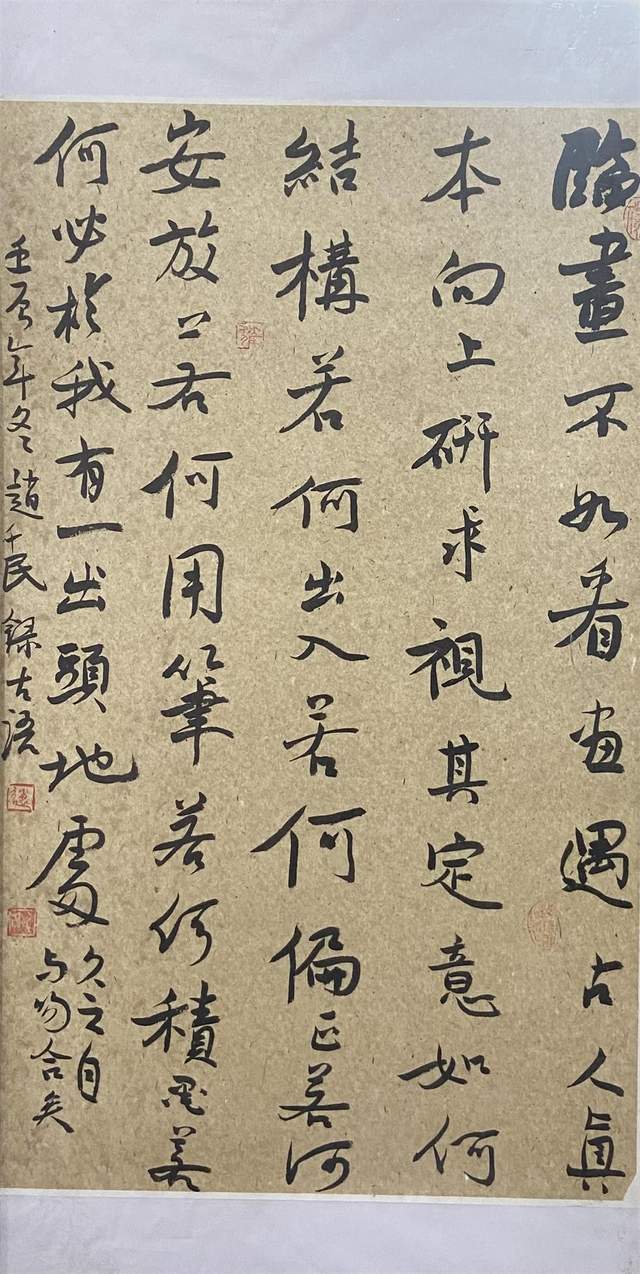 臨畫不如看画遇古人眞
本向上研求視其定意如何
結構若何出入若何偏正若何
安放若何用筆若何積墨若
何必於我有一出頭地處
久之自
与吻合矣
壬寅年冬趙千民錄古語